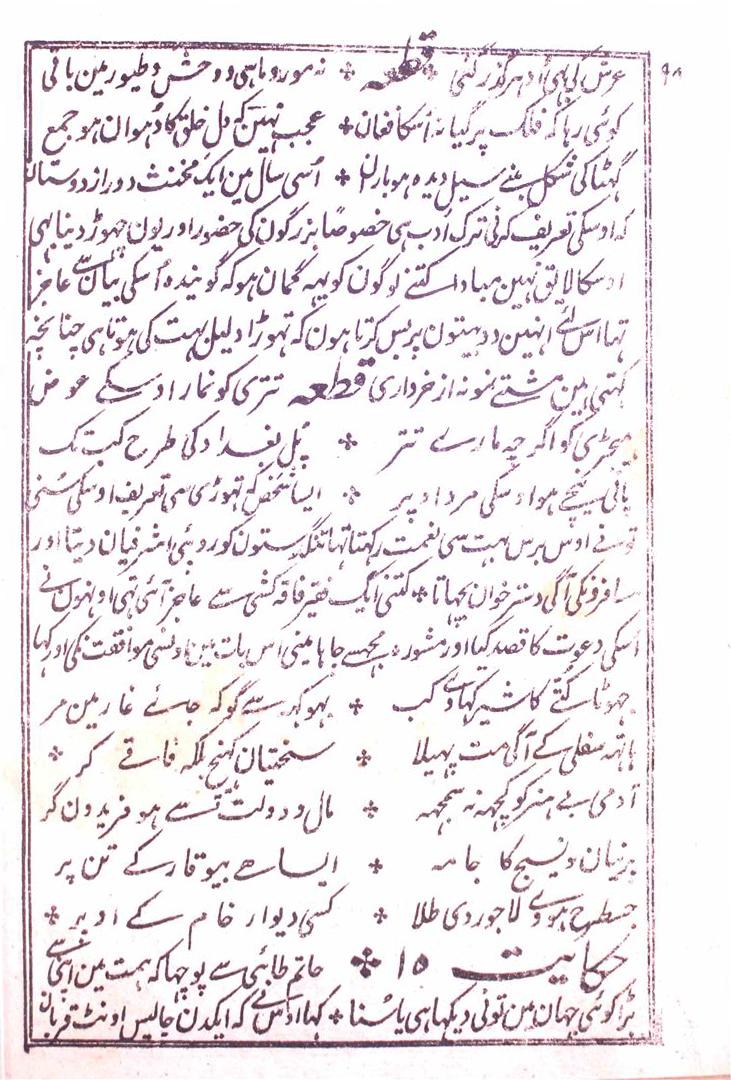 ۹۸
عرش کی ہی اودہر گذر گئی قطعہ ✤ نہ مور و ماہی و وحش و طیور مین باقی
کوئی رہا کہ فلک پر گیا نہ اُسکا فغان ✤ عجب نہین کہ دل خلق کا دُہوان ہو جمع
گہٹا کی شکل بنے سیل دیدہ ہو باران ✤ اُسی سال مین ایک مخنث دور از دوستان
کہ اوسکی تعریف کرنی ترک ادب ہی خصوصًا بزرگون کی حضور اور یون چہوڑ دینا بہی
اوسکا لایق نہین مبادا کتنے لوگون کو یہہ گمان ہو کہ گویندہ اُسکی بیان سے عاجز
تہا اس لئے انہین دو بیتون پر بس کرتا ہون کہ تہوڑا دلیل بہت کی ہوتا ہی چنانچہ
کہتی ہین مشتے نمونہ از خرواری قطعہ تتری کو نمار اوسکے عوض
ہیجڑی کو اگرچہ مارے تتر ✤ پُل بغداد کی طرح کب تک
پانی نیچے ہو اوسکی مرد اوپر ✤ ایسا شخص کہ تہوڑی سی تعریف اوسکی سُنی
تونے اوس برس بہت سی نعمت رکہتا تہا تنگدستون کو روپئی اشرفیان دیتا اور
مسافرونکی آگی دسترخوان بچہاتا ✤ کتنی ایک فقیر فاقہ کشی سے عاجز آئی تہی اونہون نے
اسکی دعوت کا قصد کیا اور مشورہ مجہسے چاہا مینی اس بات مین اونسی موافقت نکی اور کہا
جہوٹا کتے کا شیر کہاوے کب ✤ بہوکہہ سے گو کہ جائے غار مین مر
ہاتہہ سفلی کے آگی مت پہیلا ✤ سختیان کہنچ بلکہ فاقے کر ✤
آدمی بے ہنر کو کچہہ نہ سمجہہ ✤ مال و دولت سے ہو فریدون گر
پرنیان و نسیج کا جامہ ✤ ایسا ہے بیوقار کے تن پر
جسطرح ہووے لاجوردی طلا ✤ کسی دیوار خام کے اوپر ✤
حکایت ۱۵ ✤ حاتم طائی سے پوچہا کہ ہمت مین اپنی سے
بڑا کوئی جہان مین تونی دیکہا ہی یا سُنا ✤ کہا اوسنے کہ ایکدن چالیس اونٹ قربان